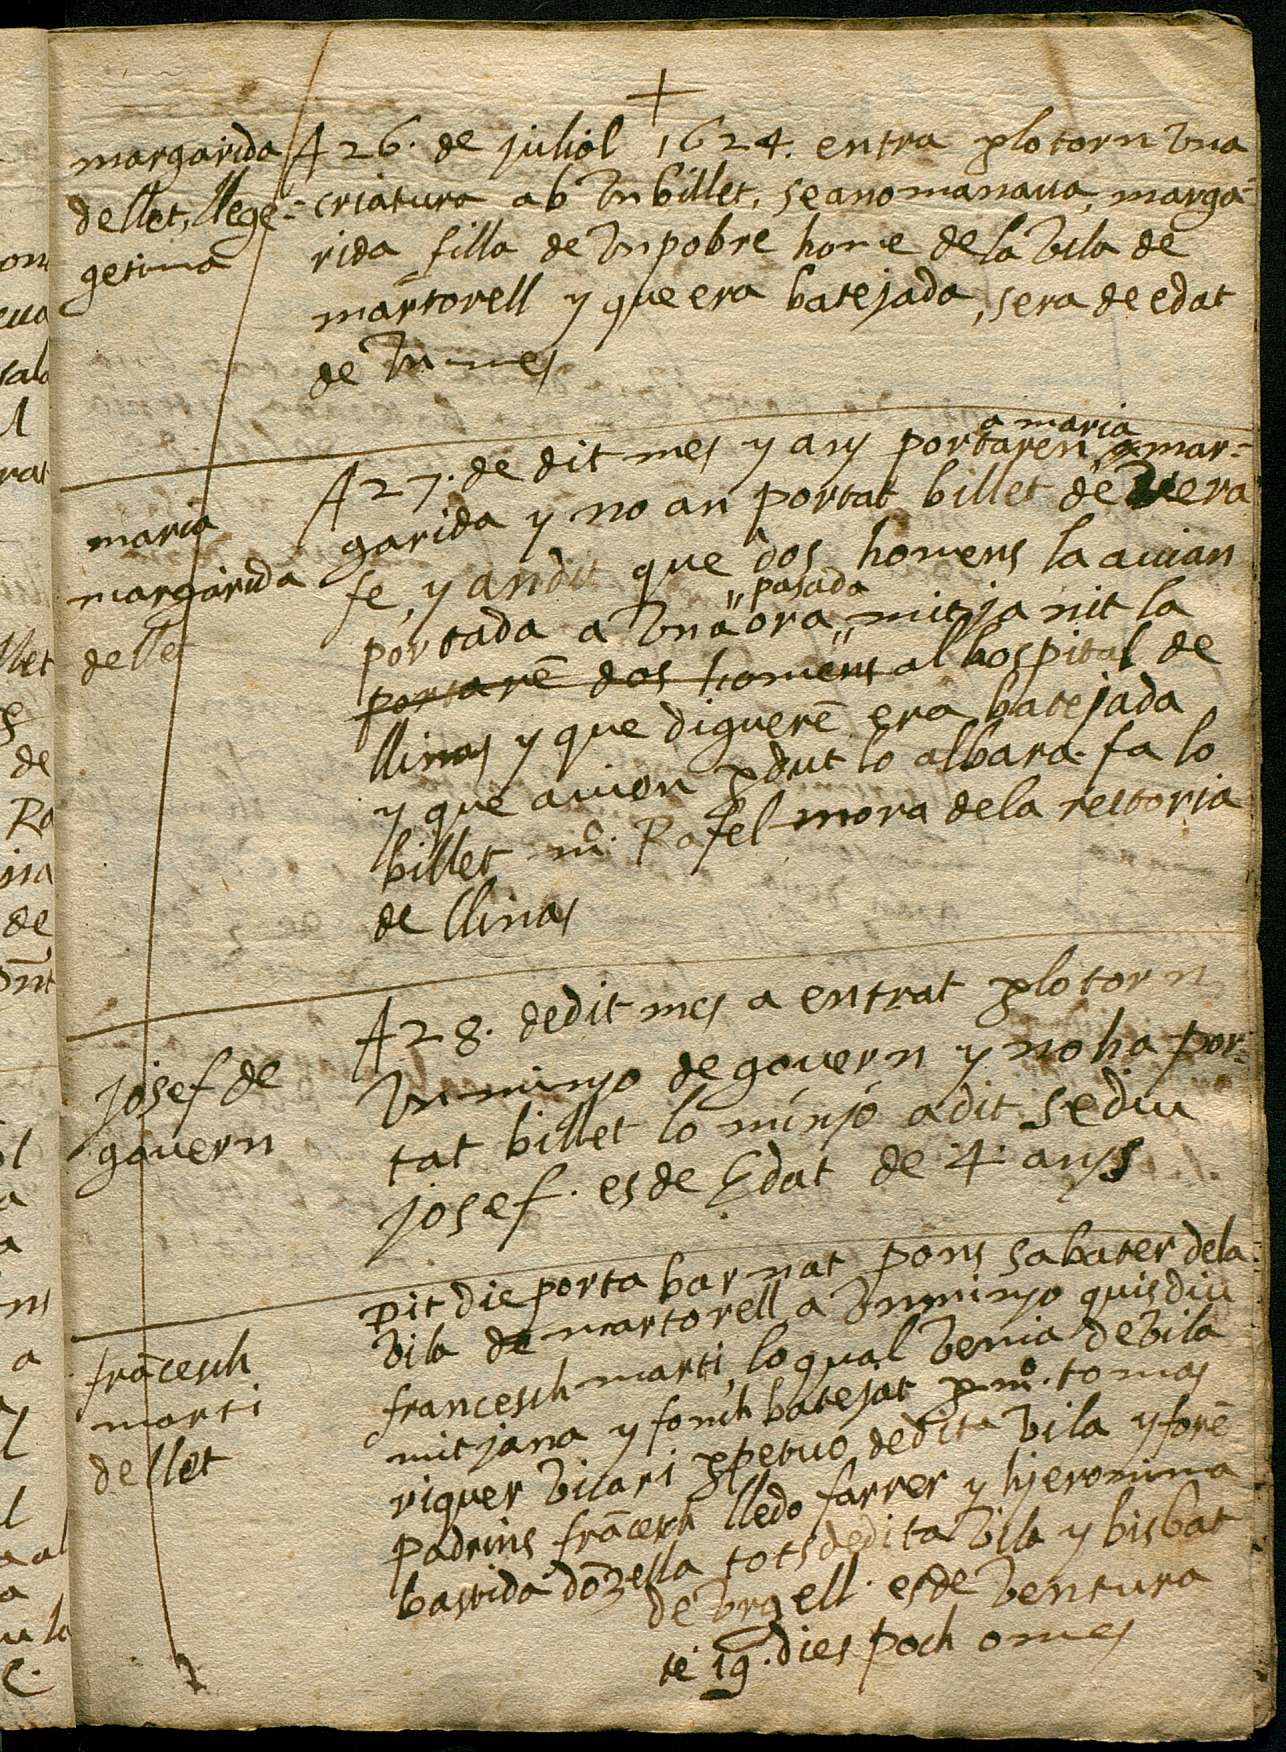 +
margarida
de llet, llege=
getima
A 26. de juliol 1624. entra p lo torn vna
criatura ab vn billet, se anomanaua, marga=
rida filla de vn pobre home de la vila de
martorell y que era batejada, sera de edat
de vn mes
maria
margarida
de llet
A 27. de dit mes y any portaren a maria mar=
garida y no an portat billet de vera
fe, y an dit que dos homens la auian
portada a vna ora pasada mitja nit la
portarē dos homens al hospital de
llinas y que diguerē era batejada
y que auien pdut lo albara. fa lo
billet mº. Rafel mora de la rectoria
de llinas
josef de
gouern
A 28. de dit mes a entrat p lo torn
vn minyo de gouern y no ha por=
tat billet lo minyo a dit se diu
josef. es de Edat de 4 anys
frācesch
marti
de llet
Dit die porta barnat pons sabater de la
vila de martorell a vn minyo quis diu
francesch marti, lo qual venia de vila
mitjana y fonch batejat p mº. tomas
riquer vicari ppetuo de dita vila y forē
padrins frācesch lledo farrer y hieronima
bastida dōzella tots de dita vila y bisbat
de vrgell. es de ventura
te 19. dies poch o mes